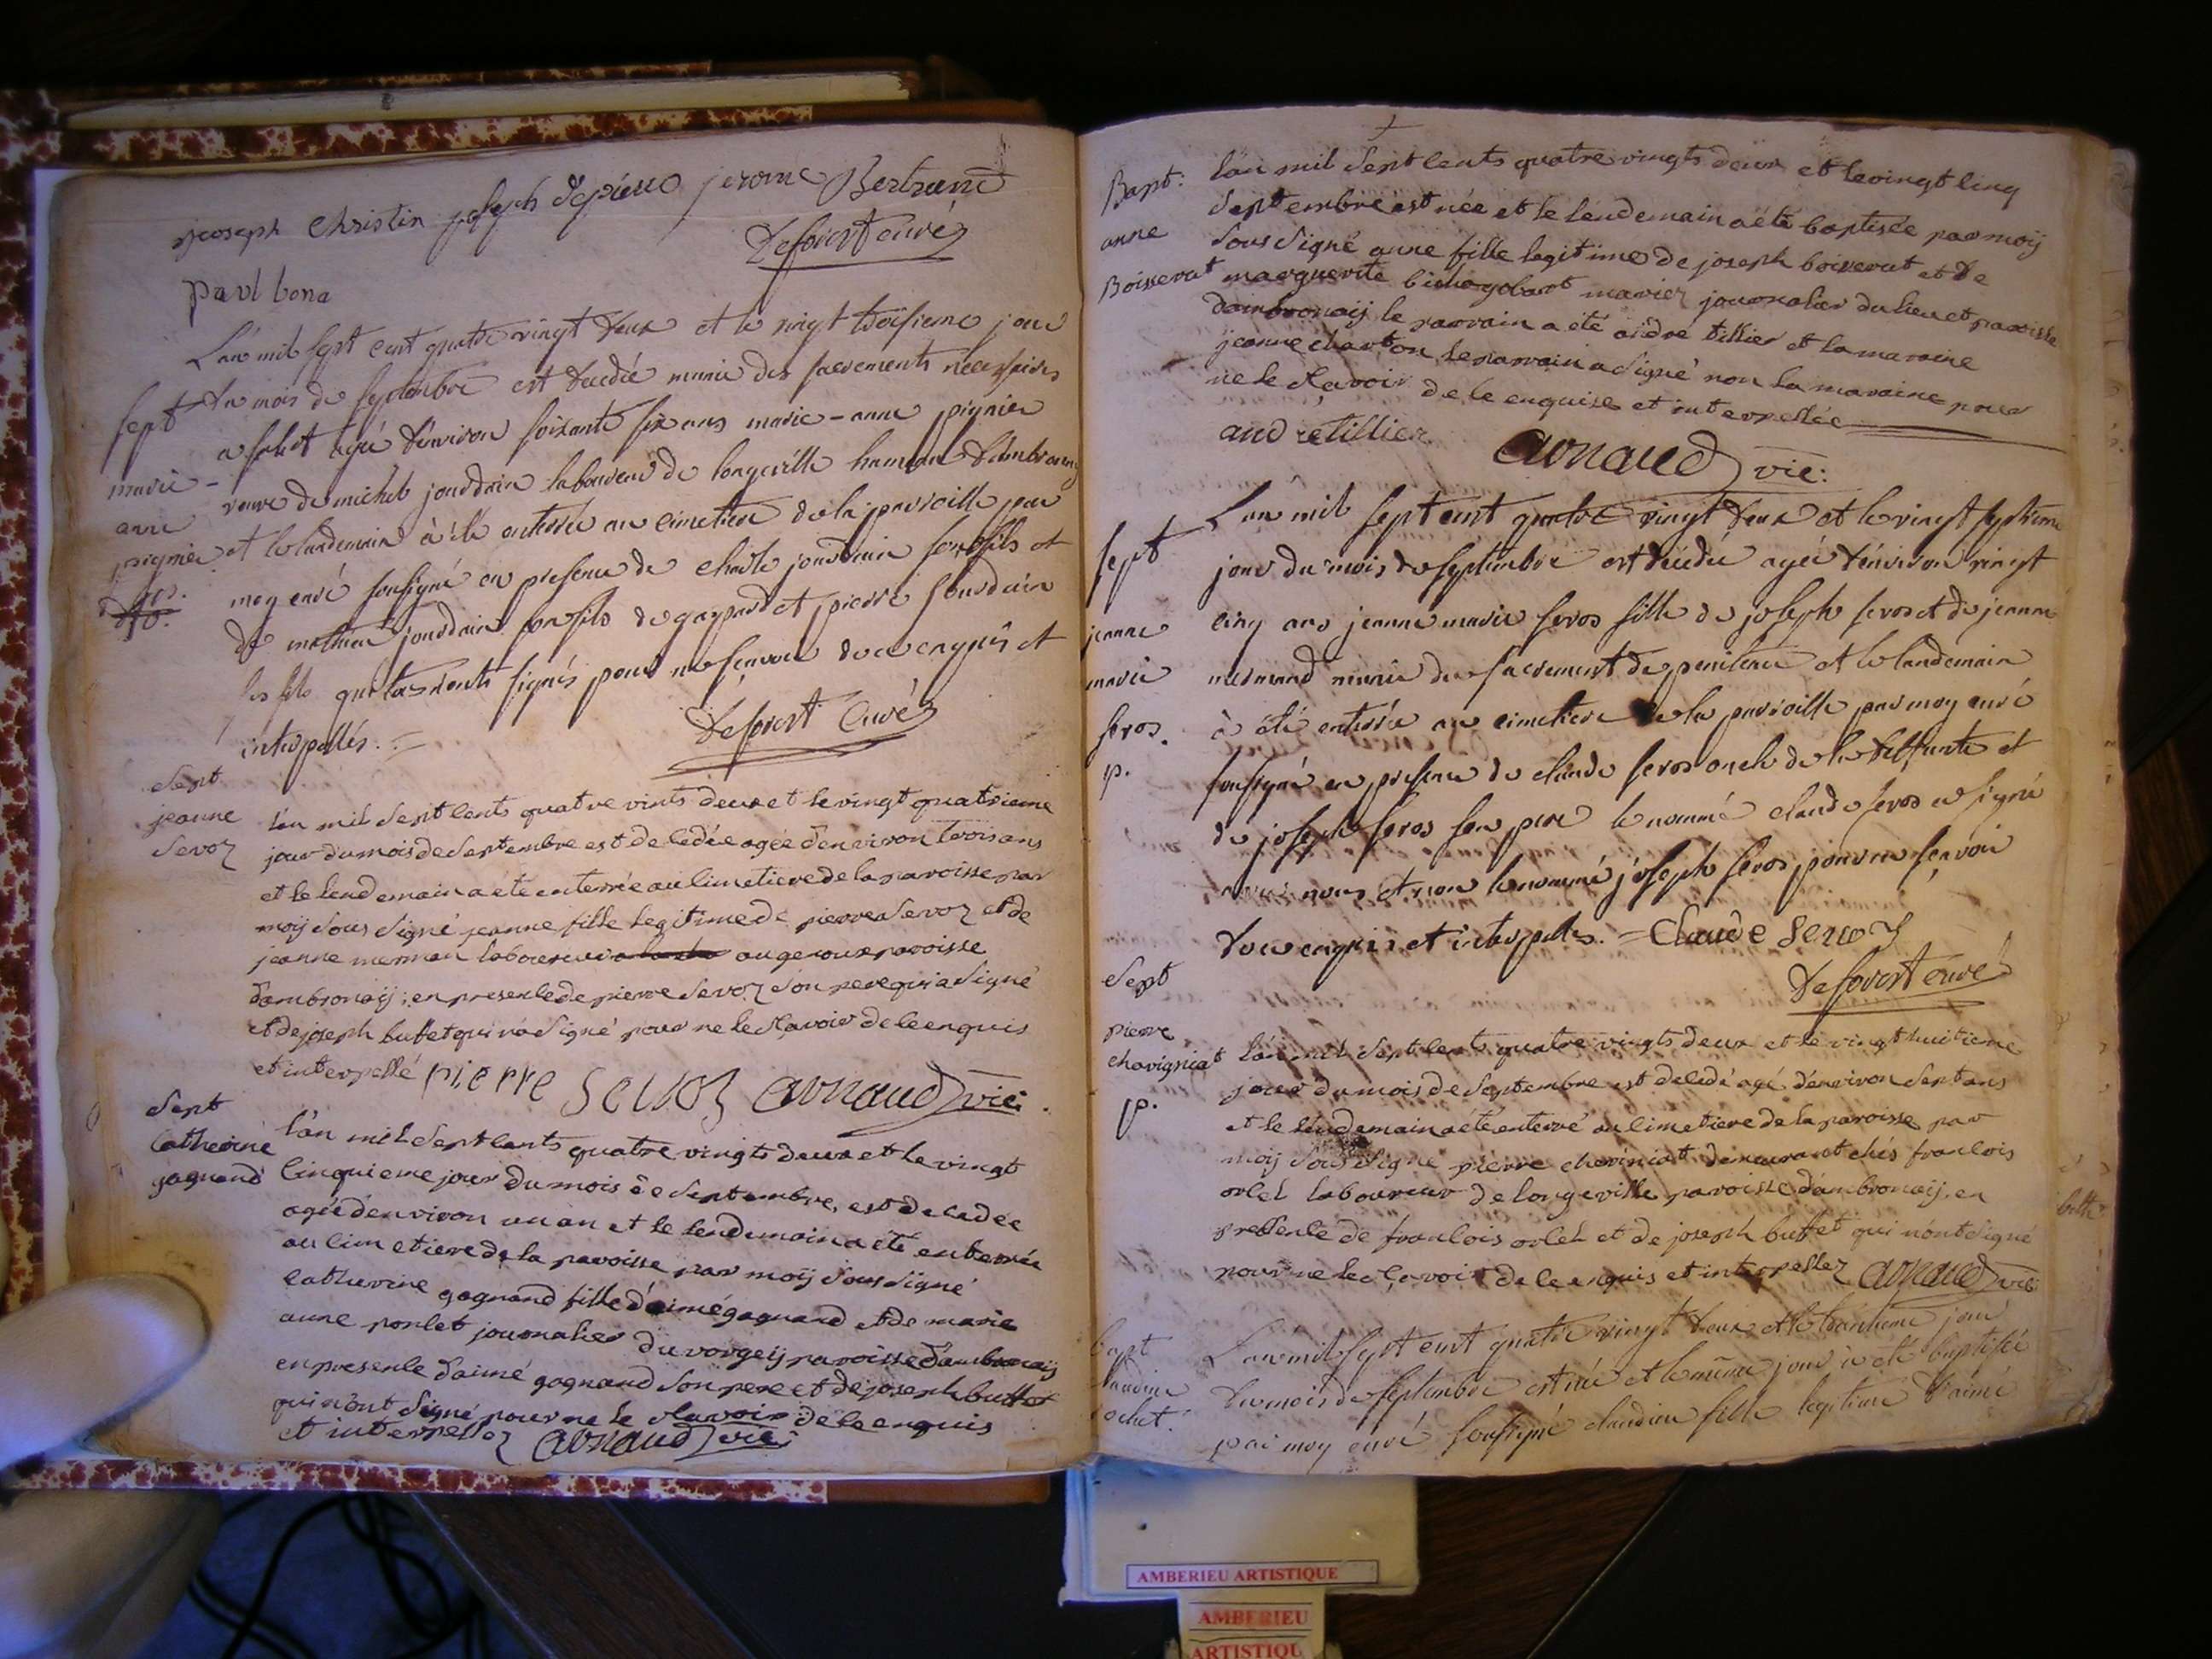 joseph Christin joseph Depierre jerome Bertrand
Deforest curé
paul bona
L'an mil sept cent quatre vingt deux et le vingt troisieme jour
du mois de septembre est decedée munie des sacrements necessaires
sept
a salut agée d'environ soixante six ans marie-anne pignier
marie-
veuve de michel jourdain laboureur de longeville hameau d'ambronay
anne
pignier
et le landemain à été enterrée au cimetiere de la parroisse par
moy curé soussigné en presence de charle jourdain son fils et
de mathieu jourdain son fils de gaspard et pierre jourdain
les fils qui signés pour ne sçavoir de ce enquis et
interpellés.
Deforest Curé
Sept
jeanne
Sevoz
L'an mil Sept Cents quatre vints deux et le vingt quatrieme
jour du mois de Septembre est decedée agée d'environ trois ans
et le lendemain a été enterrée au Cimetiere de la paroisse par
moij Sous Signé jeanne fille legitime de pierre Sevoz et de
jeanne merman laboureur au genoux paroisse
d'ambronaij; en presence de pierre Sevoz Son pere qui a Signé
et de joseph buffet qui n'a Signé pour ne le Sçavoir de ce enquis
et interpellé pierre Sevoz Arnaud vic:
Sept
Catherine
gagnand
L'an mil Sept Cents quatre vingts deux et le vingt
Cinquieme jour du mois de Septembre, est decedée
agée d'environ un an et le lendemain a été enterrée
au Cimetiere de la paroisse par moij Sous Signé
Catherine gagnand fille d'aimé gagnand et de marie
anne ponlet journalier du vorgeij paroisse d'ambronaij
en presence d'aimé gagnand Son pere et de joseph buffet
qui n'ont Signé pour ne le Sçavoir de ce enquis
et interpellez Arnaud vic:
Bapt:
anne
Boisserat
L'an mil Sept Cents quatre vingts deux et le vingt Cinq
Septembre est née et le lendemain a été baptisée par moij
Sous Signé anne fille legitime de joseph boisserat et de
marguerite mariez journalier du lieu et paroisse
d'ambronaij le parrain a été andré tillier et la maraine
jeanne charton le parrain a Signé non la maraine pour
ne le Sçavoir de ce enquise et interpellée
andré tillier Arnaud vic:
L'an mil sept cent quatre vingt deux et le vingt septieme
sept
jour du mois de septembre est decedée agée d'environ vingt
jeanne
cinq ans jeanne marie servos fille de joseph servos et de jeanne
marie
mermand munie du sacrement de penitence et le landemain
servos.
à été enterrée au cimetiere de la parroisse par moy curé
p.
soussigné en presence de claude servos oncle de la deffunte et
de joseph servos son pere le nommé claude servos a signé
avec nous et non le nommé joseph servos pour ne sçavoir
de ce enquis et interpellés. = Claude Servoz
Deforest curé
Sept
pierre
chavigniat
p.
L'an mil Sept Cents quatre vingts deux et le vingt huitieme
jour du mois de Septembre est decedé agé d'environ Sept ans
et le lendemain a été enterré au Cimetiere de la paroisse par
moij Sous Signé pierre demeurant chés francois
orlet laboureur de longeville paroisse d'ambronaij en
presence de francois orlet et de joseph buffet qui n'ont Signé
pour ne le Sçavoir de ce enquis et interpellez Arnaud vic:
L'an mil sept cent quatre vingt deux et le trentieme jour
du mois de septembre est née et le même jour à été baptisée
par moy curé soussigné claudine fille legitime d'aimé
AMBERIEU ARTISTIQUE
AMBERIEU
ARTISTIQU